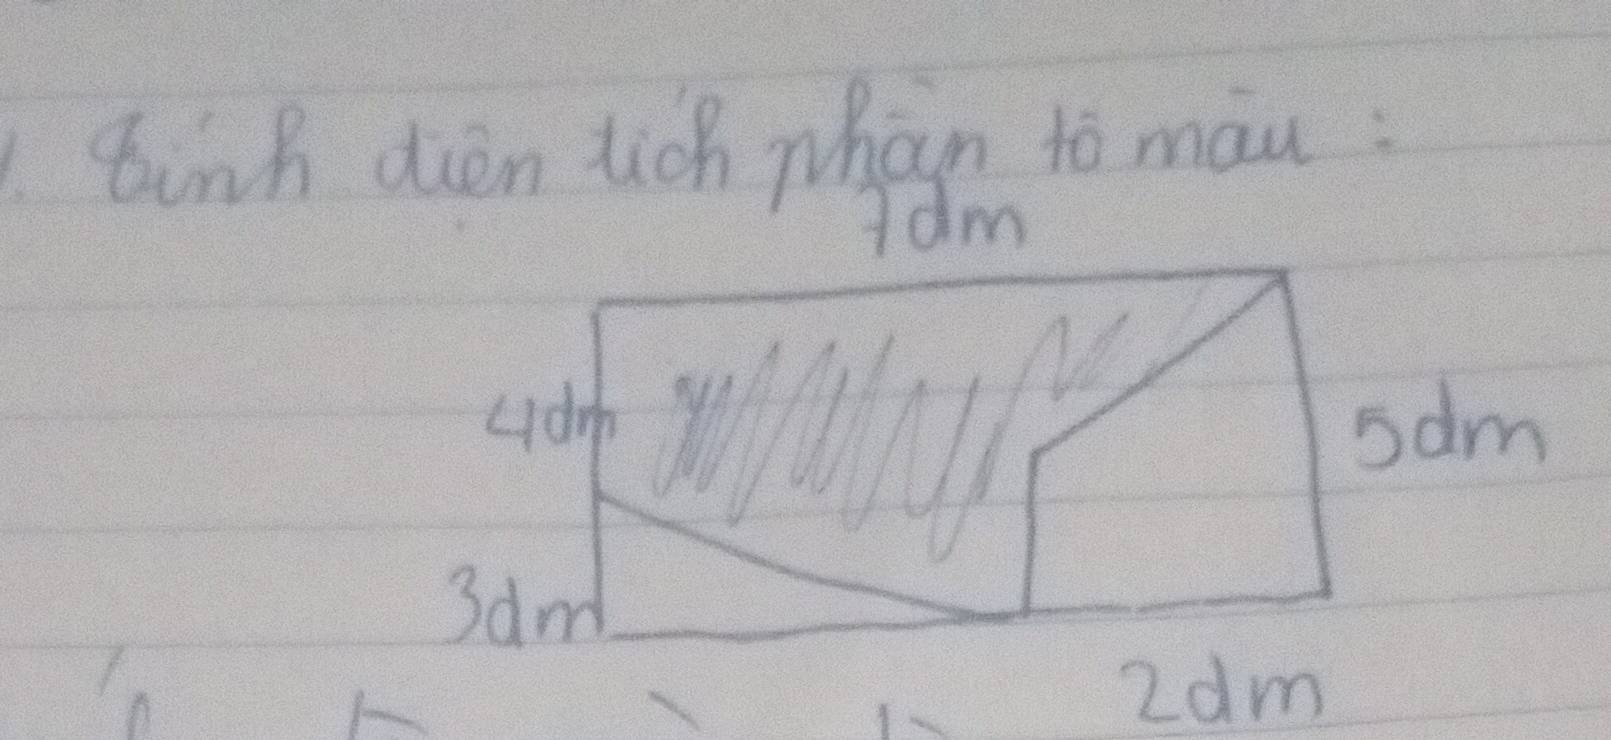 1. Tính diện tích phần tô màu :
7dm
4dm
5dm
3dm
2dm